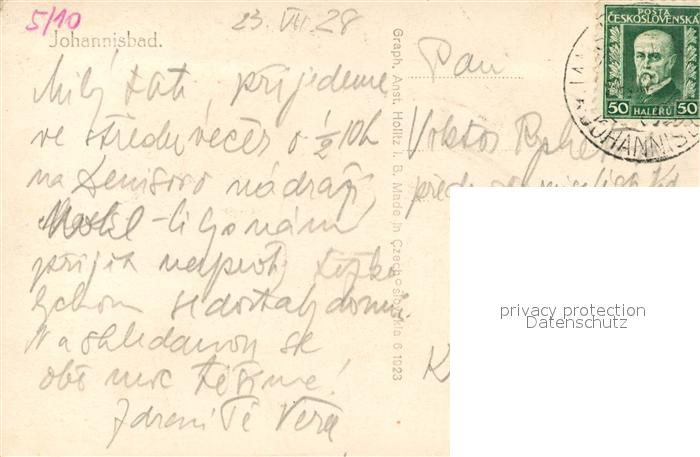 5/10
Johannisbad.
23. VII. 28
Milý táto, přijedeme
ve středu večer o ½10h
na Denisovo nádraží
-li bys nám
přijít naproti, těžko
bychom se dostaly domů.
Na shledanou se
obě moc těšíme!
Zdraví Tě Věra
Graph. Anst. Hollitz i. B. Made in Czechoslovakia 6 1923
Pan
K
POSTA
ČESKOSLOVENSKÁ
50 HALÉŘŮ 50
JOHANNIS
privacy protection
Datenschutz